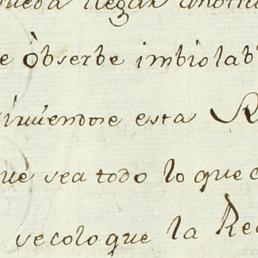 ueda llegar
e òbserbe imbiolab
inuiendose esta R
ue sea todo lo que c
secolo que la Rea